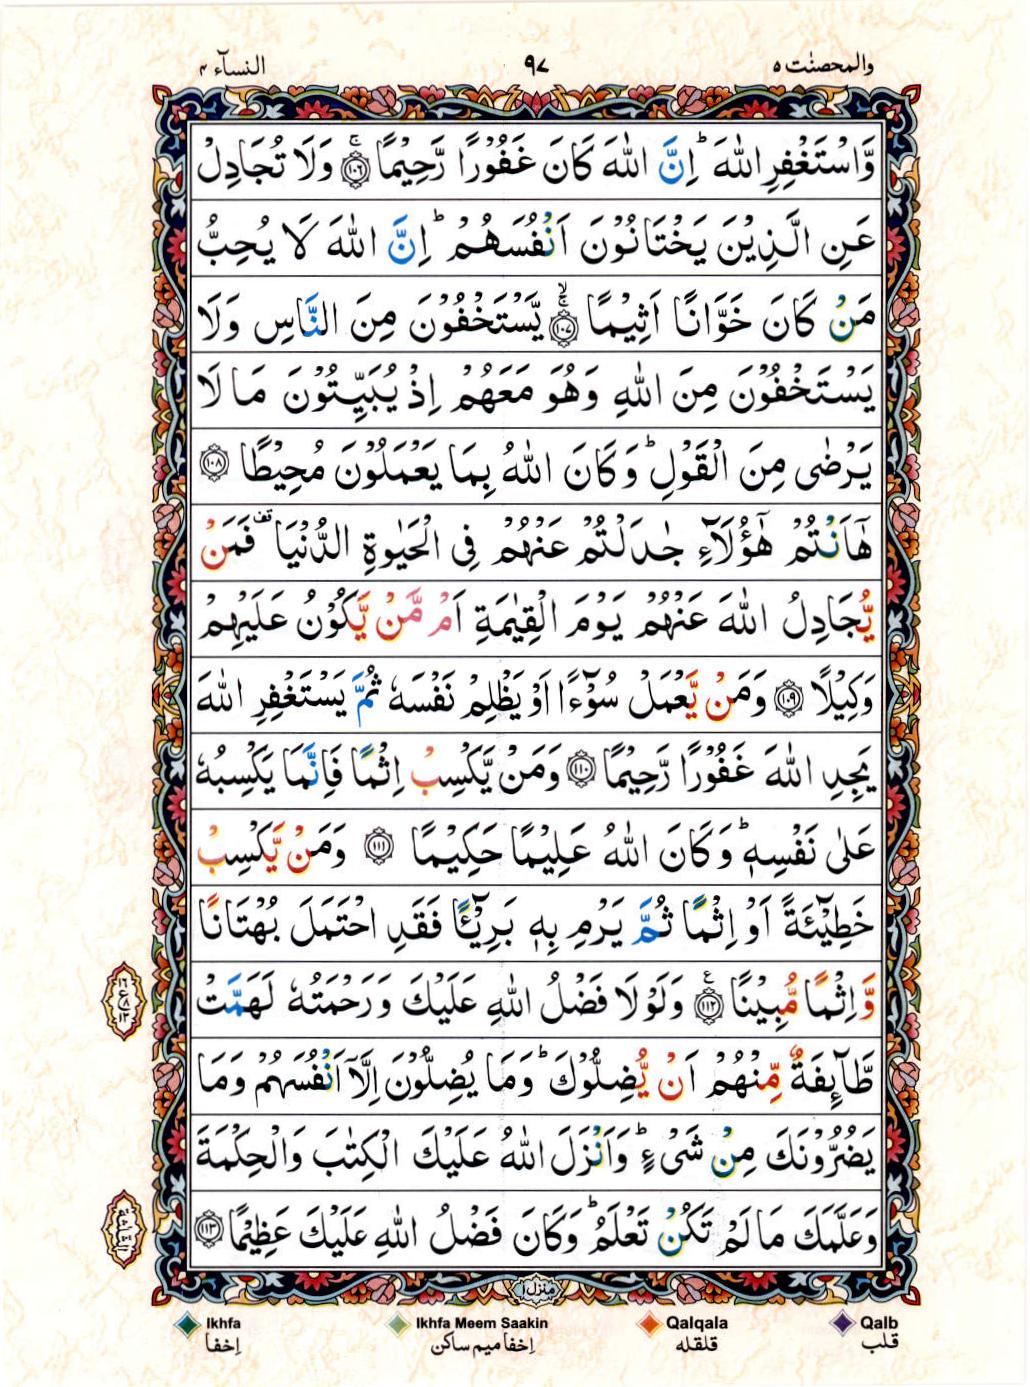 والمحصنٰت ٥
٩٧
النسآء ٤
وَّاسْتَغْفِرِ اللّٰهَ ؕ اِنَّ اللّٰهَ كَانَ غَفُوْرًا رَّحِيْمًا ۚ‏﴿۱۰۶﴾ وَلَا تُجَادِلْ
عَنِ الَّذِيْنَ يَخْتَانُوْنَ اَنْفُسَهُمْ ؕ اِنَّ اللّٰهَ لَا يُحِبُّ
مَنْ كَانَ خَوَّانًا اَثِيْمًا ۙۚ‏﴿۱۰۷﴾ يَّسْتَخْفُوْنَ مِنَ النَّاسِ وَلَا
يَسْتَخْفُوْنَ مِنَ اللّٰهِ وَهُوَ مَعَهُمْ اِذْ يُبَيِّتُوْنَ مَا لَا
يَرْضٰى مِنَ الْقَوْلِ ؕ وَكَانَ اللّٰهُ بِمَا يَعْمَلُوْنَ مُحِيْطًا ﴿۱۰۸﴾
هٰۤاَنْتُمْ هٰٓؤُلَآءِ جٰدَلْتُمْ عَنْهُمْ فِى الْحَيٰوةِ الدُّنْيَا قف فَمَنْ
يُّجَادِلُ اللّٰهَ عَنْهُمْ يَوْمَ الْقِيٰمَةِ اَمْ مَّنْ يَّكُوْنُ عَلَيْهِمْ
وَكِيْلًا ﴿۱۰۹﴾ وَمَنْ يَّعْمَلْ سُوْٓءًا اَوْ يَظْلِمْ نَفْسَهٗ ثُمَّ يَسْتَغْفِرِ اللّٰهَ
يَجِدِ اللّٰهَ غَفُوْرًا رَّحِيْمًا ﴿۱۱۰﴾ وَمَنْ يَّكْسِبْ اِثْمًا فَاِنَّمَا يَكْسِبُهٗ
عَلٰى نَفْسِهٖ ؕ وَكَانَ اللّٰهُ عَلِيْمًا حَكِيْمًا ﴿۱۱۱﴾ وَمَنْ يَّكْسِبْ
خَطِيْٓئَةً اَوْ اِثْمًا ثُمَّ يَرْمِ بِهٖ بَرِيْٓـًٔا فَقَدِ احْتَمَلَ بُهْتَانًا
وَّاِثْمًا مُّبِيْنًا ﴿۱۱۲﴾ ع وَلَوْلَا فَضْلُ اللّٰهِ عَلَيْكَ وَرَحْمَتُهٗ لَهَمَّتْ
طَّآئِفَةٌ مِّنْهُمْ اَنْ يُّضِلُّوْكَ ؕ وَمَا يُضِلُّوْنَ اِلَّاۤ اَنْفُسَهُمْ وَمَا
يَضُرُّوْنَكَ مِنْ شَىْءٍ ؕ وَاَنْزَلَ اللّٰهُ عَلَيْكَ الْكِتٰبَ وَالْحِكْمَةَ
وَعَلَّمَكَ مَا لَمْ تَكُنْ تَعْلَمُ ؕ وَكَانَ فَضْلُ اللّٰهِ عَلَيْكَ عَظِيْمًا ﴿۱۱۳﴾
منزل ١
Ikhfa
Ikhfa Meem Saakin
Qalqala
Qalb
اِخفا
اِخفا ميم ساكن
قلقله
قلب